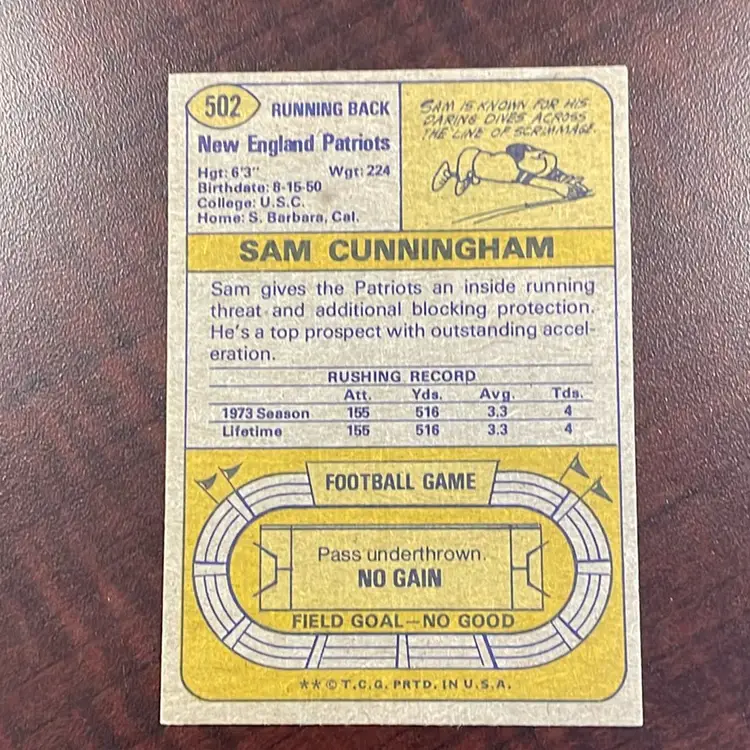 502 RUNNING BACK
New England Patriots
Hgt: 6'3" Wgt: 224
Birthdate: 8-15-50
College: U.S.C.
Home: S. Barbara, Cal.
SAM IS KNOWN FOR HIS
DARING DIVES ACROSS
THE LINE OF SCRIMMAGE.
SAM CUNNINGHAM
Sam gives the Patriots an inside running
threat and additional blocking protection.
He's a top prospect with outstanding accel-
eration.
RUSHING RECORD
Att. Yds. Avg. Tds.
1973 Season 155 516 3.3 4
Lifetime 155 516 3.3 4
FOOTBALL GAME
Pass underthrown.
NO GAIN
FIELD GOAL—NO GOOD
★★©T.C.G. PRTD. IN U.S.A.